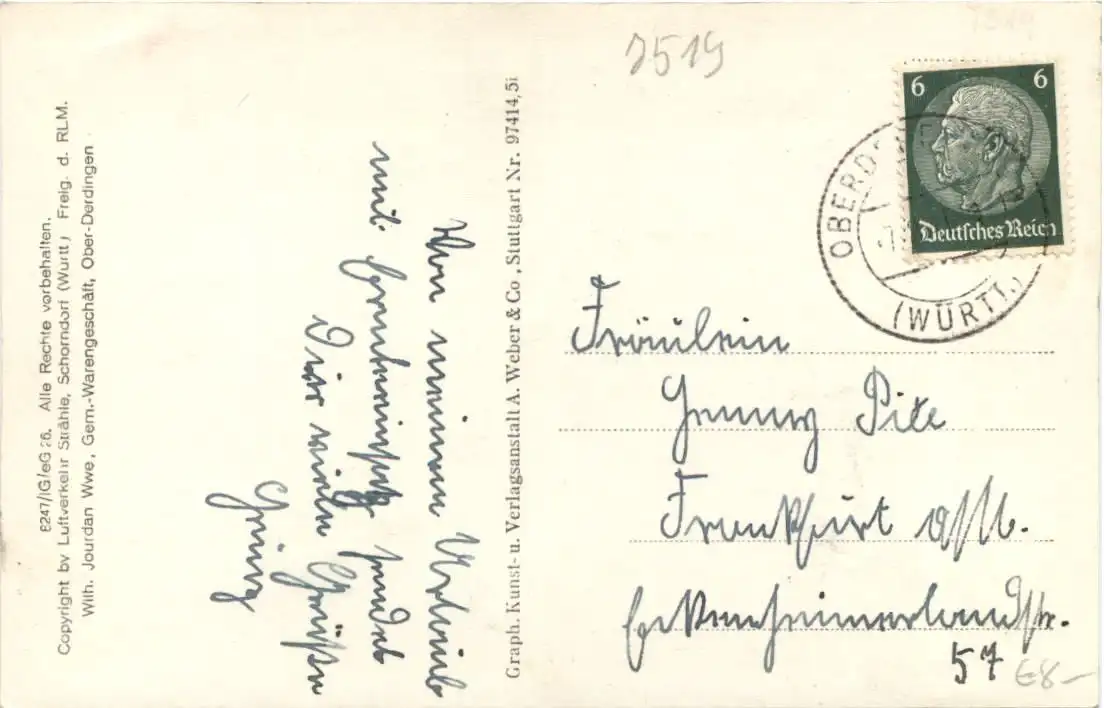 8247/IG/eG 26. Alle Rechte vorbehalten.
Copyright by Luftverkehr Strähle, Schorndorf (Württ) Freig. d. RLM.
Wilh. Jourdan Wwe, Gem.-Warengeschäft, Ober-Derdingen
Von meinem Urlaub
mit
sendet
Dir viele Grüße
Graph. Kunst- u. Verlagsanstalt A. Weber & Co., Stuttgart Nr. 97414,5i
7519
6 6
Deutsches Reich
OBERD
(WÜRTT.)
Fräulein
Frankfurt a/M.
Eckenheimerlandstr.
57
€8-